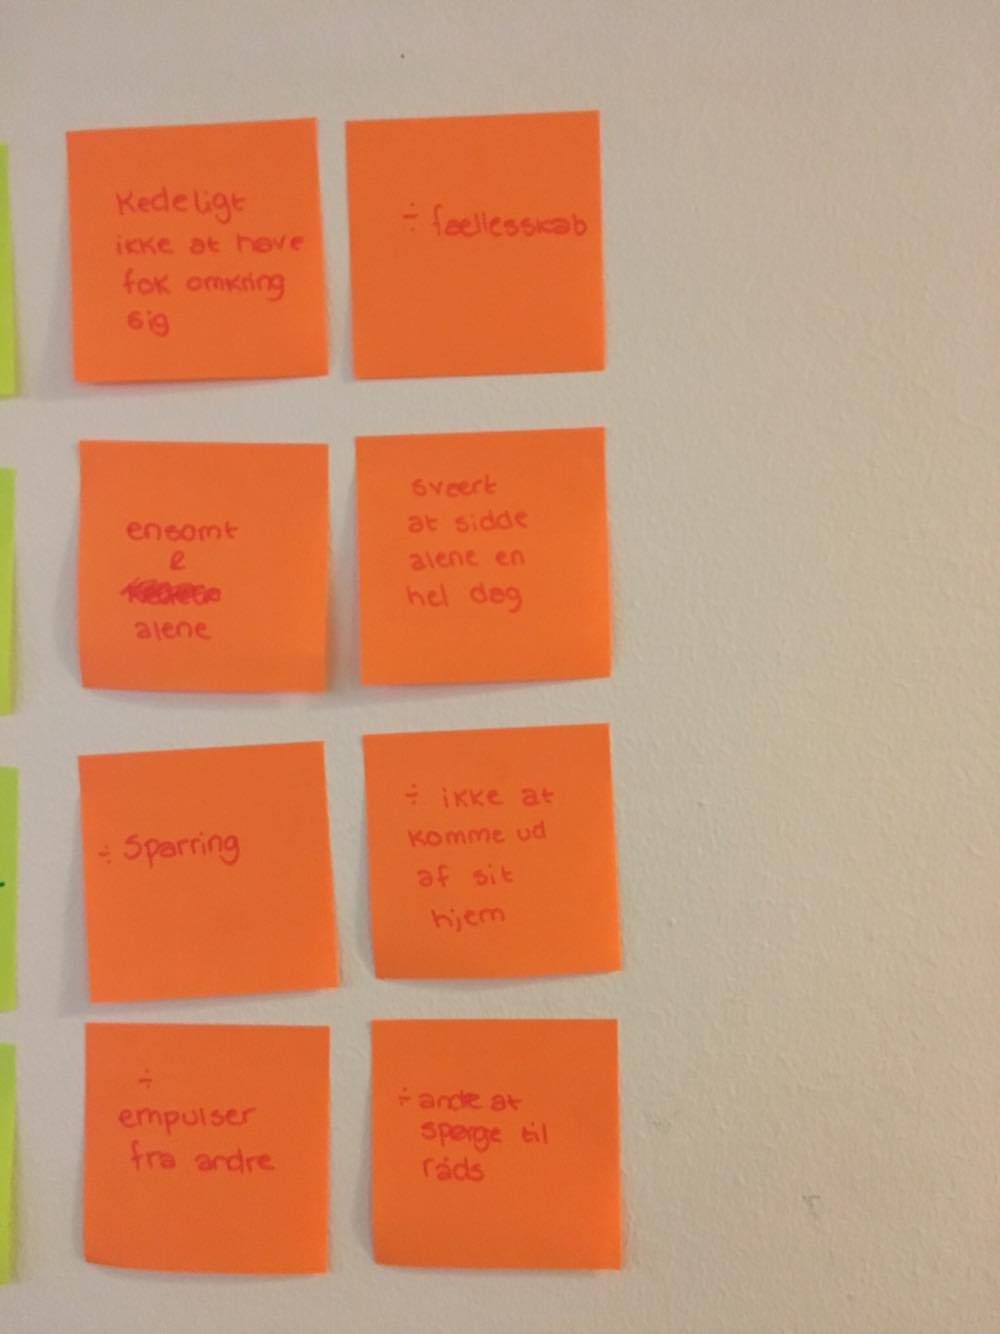 Kedeligt
ikke at have
folk omkring
sig
÷ fællesskab
ensomt
e
alene
svært
at sidde
alene en
hel dag
÷ Sparring
÷ ikke at
komme ud
af sit
hjem
÷
empulser
fra andre
÷ andre at
spørge til
råds